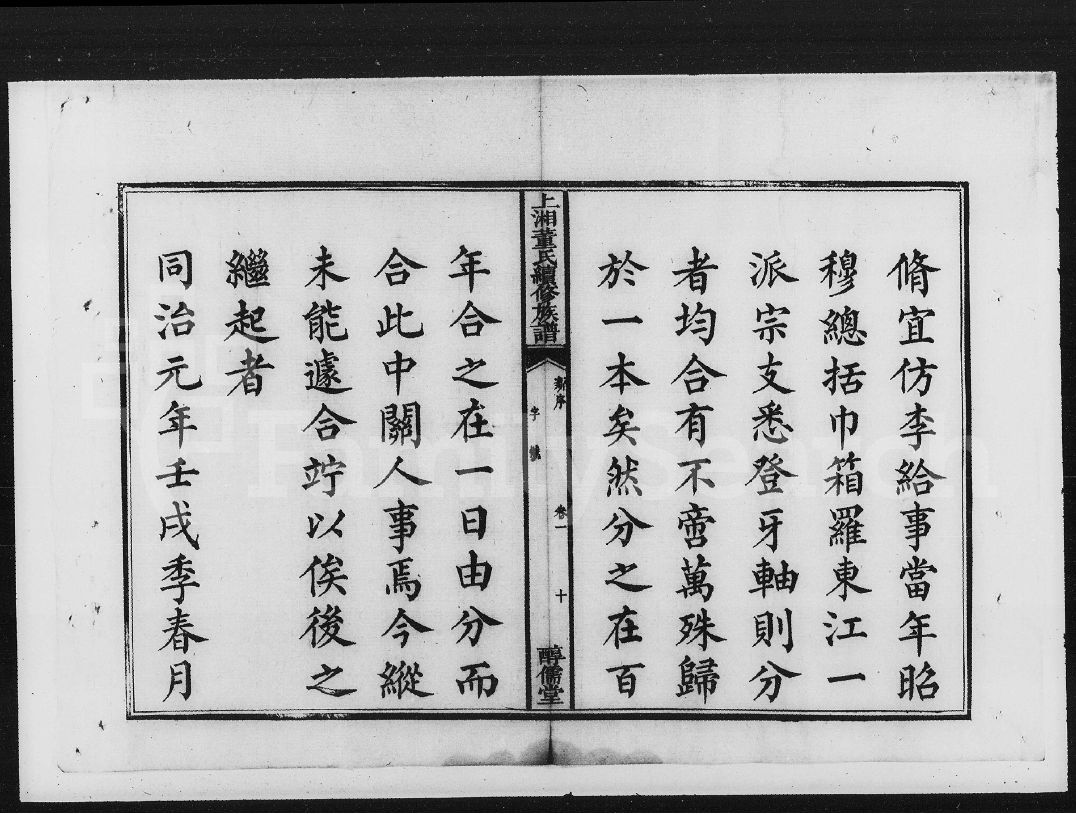 脩宜仿李給事當年昭
穆總括巾箱羅東江一
派宗支悉登牙軸則分
者均合有不啻萬殊歸
於一本矣然分之在百
上湘董氏續修族譜
新序
字號
卷一
十
醇儒堂
年合之在一日由分而
合此中關人事焉今縱
未能遽合竚以俟後之
繼起者
同治元年壬戌季春月
FamilySearch